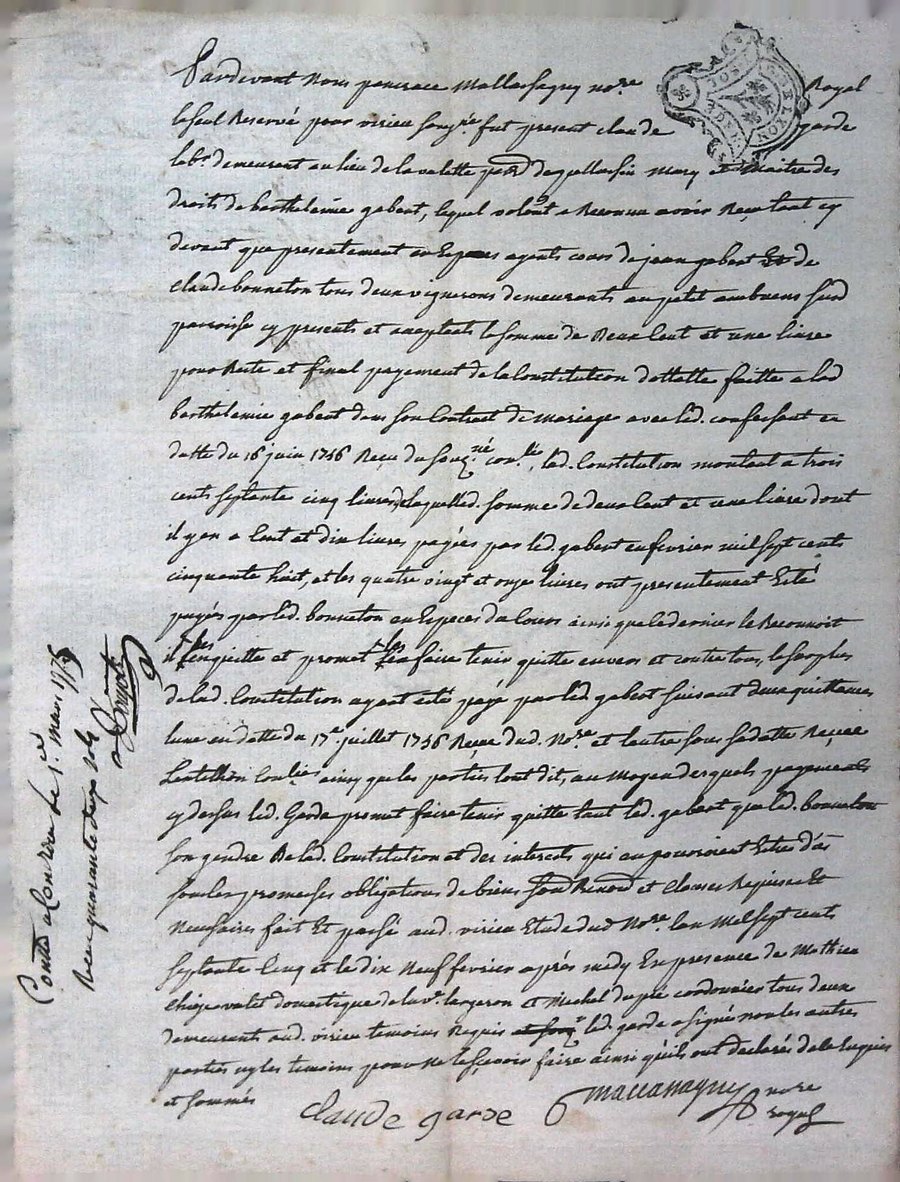 Pardevant Nous pancrace Mallassagny no.re Royal
le seul Reservé pour virieu soug.né fut present claude garde
lab.r demeurant au lieu de la valette par.se de pellussin mary et Maitre des
droits de barthelemie gabert, lequel volont a Reconnu avoir Reçu tant cy
devant que presentement en Especes ayants cours de jean gabert Et de
claude bonneton tous deux vignerons demeurants au petit ambuens sud
parroisse cy presents et acceptants la somme de Deux Cent et une livre
pour Reste et final payement de la Constitution dottalle faitte a lad
barthelemie gabert dans son Contract de Mariage avec led. confessant en
datte du 16 juin 1756 Reçu du soug.né con.lé, lad. Constitution montant a trois
cents septante cinq livres, de laquelle d. somme de deux Cent et une livre dont
il y en a Cent et dix livres payées par led. gabert en fevrier mil sept cents
cinquante huit, et les quatre vingt et onze livres ont presentement Esté
payés par led. bonneton en Especes du Cours ainsi que le dernier le Reconnoit
il les en quitte et promet les en faire tenir quitte envers et contre tous, le surplus
de lad. Constitution ayant esté payé par led. gabert suivant deux quittances
lune en datte du 17.e juillet 1756 Reçue dud. No.re et lautre sous sa datte Reçue
Con.lées ainsy que les parties lont dit, au Moyen desquels payements
cy dessus led. Garde promet faire tenir quitte tant led. gabert que led. bonneton
son gendre De lad. Constitution et des interets qui en pouvroient Estre dûs
sous les promesses obligations de biens soud Renond et clauses Requises Et
Necessaires fait Et passé aud. virieu Etude dud No.re lan Mil sept cents
septante Cinq et le dix Neuf fevrier après midy En presence de Mathieu
chieze valet domestique de la v.e largeron et Michel dupré cordonnier tous deux
demeurants aud. virieu temoins Requis led. garde a signé non les autres
parties ny les temoins pour Ne le sçavoir faire ainsi qu'ils ont declarés de ce Enquis
et sommés
claude garde Mallassagny no.re
royal
Contlé a Condrieu le 1.er mars 1775
Reçu quarante sols